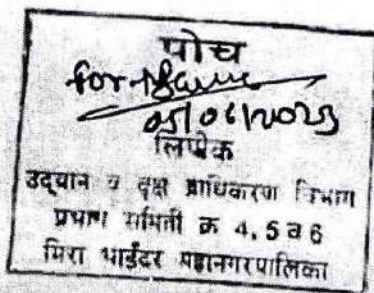 पोच
for
05/06/2023
लिपीक
उद्यान व वृक्ष प्राधिकरण विभाग
प्रभाग समिती क्र 4, 5 व 6
मिरा भाईंदर महानगरपालिका